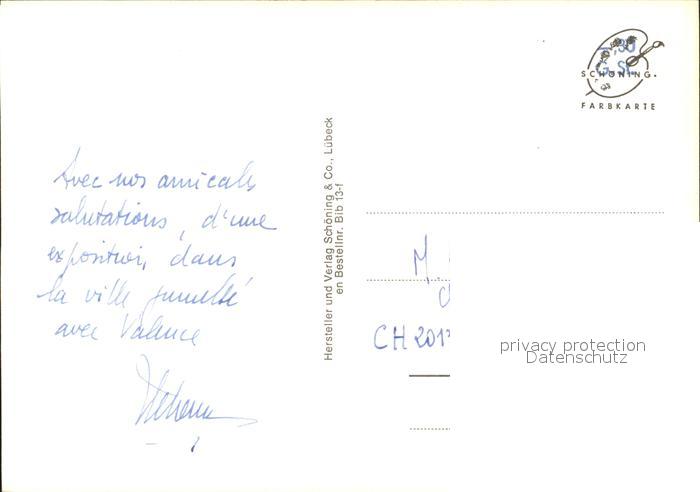 Avec nos amicales
salutations, d'une
exposition, dans
la ville jumelée
avec Valence
Hersteller und Verlag Schöning & Co., Lübeck
en Bestellnr. Bib 13-f
SCHÖNING
FARBKARTE
M.
CH 201
privacy protection
Datenschutz